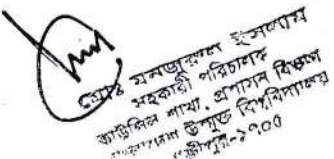 মোঃ মনজুরুল ইসলাম
সহকারী পরিচালক
কাউন্সিল শাখা, প্রশাসন বিভাগ
উন্মুক্ত বিশ্ববিদ্যালয়
গাজীপুর-১৭০৫